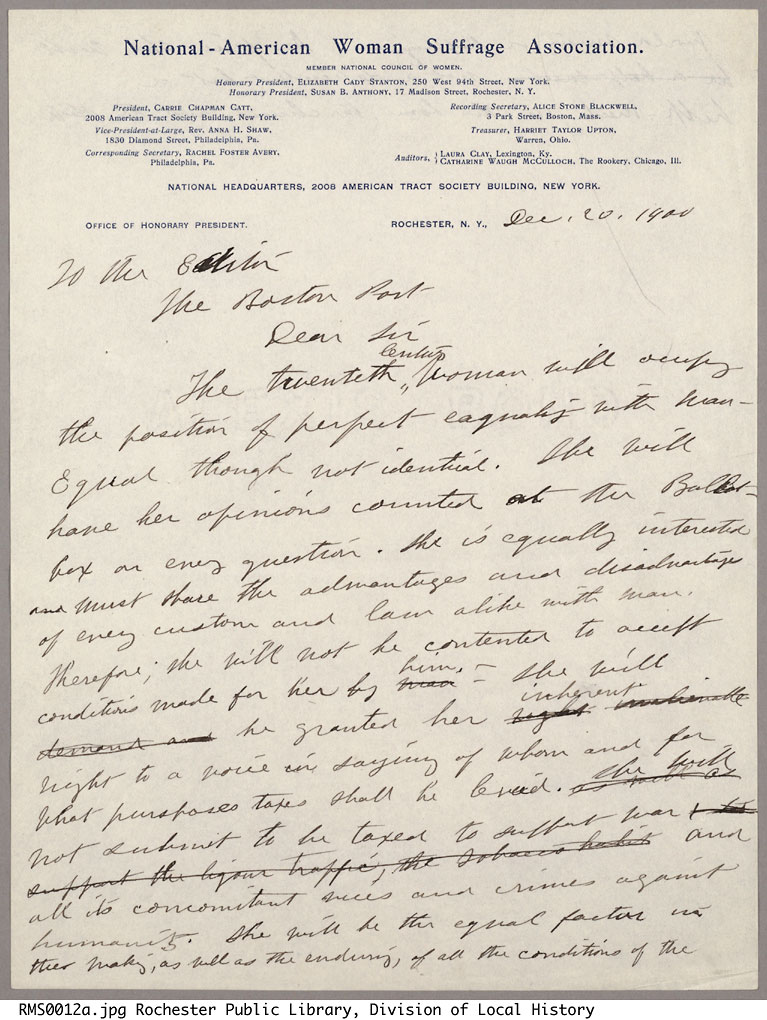 National-American Woman Suffrage Association.
MEMBER NATIONAL COUNCIL OF WOMEN.
Honorary President, ELIZABETH CADY STANTON, 250 West 94th Street, New York.
Honorary President, SUSAN B. ANTHONY, 17 Madison Street, Rochester, N. Y.
President, CARRIE CHAPMAN CATT,
2008 American Tract Society Building, New York.
Vice-President-at-Large, REV. ANNA H. SHAW,
1830 Diamond Street, Philadelphia, Pa.
Corresponding Secretary, RACHEL FOSTER AVERY,
Philadelphia, Pa.
Recording Secretary, ALICE STONE BLACKWELL,
3 Park Street, Boston, Mass.
Treasurer, HARRIET TAYLOR UPTON,
Warren, Ohio.
Auditors, { LAURA CLAY, Lexington, Ky.
{ CATHARINE WAUGH MCCULLOCH, The Rookery, Chicago, Ill.
NATIONAL HEADQUARTERS, 2008 AMERICAN TRACT SOCIETY BUILDING, NEW YORK.
OFFICE OF HONORARY PRESIDENT. ROCHESTER, N. Y., Dec. 20, 1900
To the Editor
The Boston Post
Dear Sir
The twentieth century woman will occupy
the position of perfect equality with man—
Equal though not identical. She will
have her opinions counted at the Ballot-
box on every question. She is equally interested
and must share the advantages and disadvantages
of every custom and law alike with man.
Therefore, she will not be contented to accept
conditions made for her by man him. — She will
demand and be granted her right inalienable inherent
right to a voice in saying of whom and for
what purposes taxes shall be levied. She will
not submit to be taxed to support war
support the liquor traffic, the tobacco habit and
all its concomitant vices and crimes against
humanity. She will be the equal factor in
the making, as well as the enduring, of all the conditions of the
RMS0012a.jpg Rochester Public Library, Division of Local History